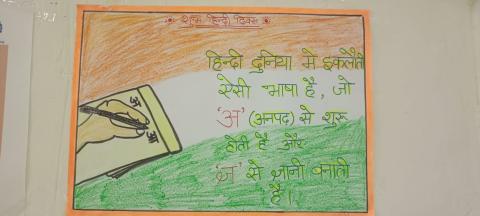 शुभ हिन्दी दिवस
हिन्दी दुनिया में इकलौती
ऐसी भाषा है, जो
'अ' (अनपढ़) से शुरू
होती है और
'ज्ञ' से ज्ञानी बनाती
है।
अ
आ